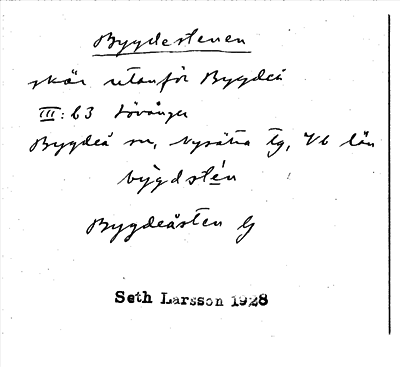 Bygdestenen
skär utanför Bygdeå
III: 63 Lövånger
Bygdeå sn, Nysätra tg, Vb län
bỳgdstén
Bygdeåsten G
Seth Larsson 1928